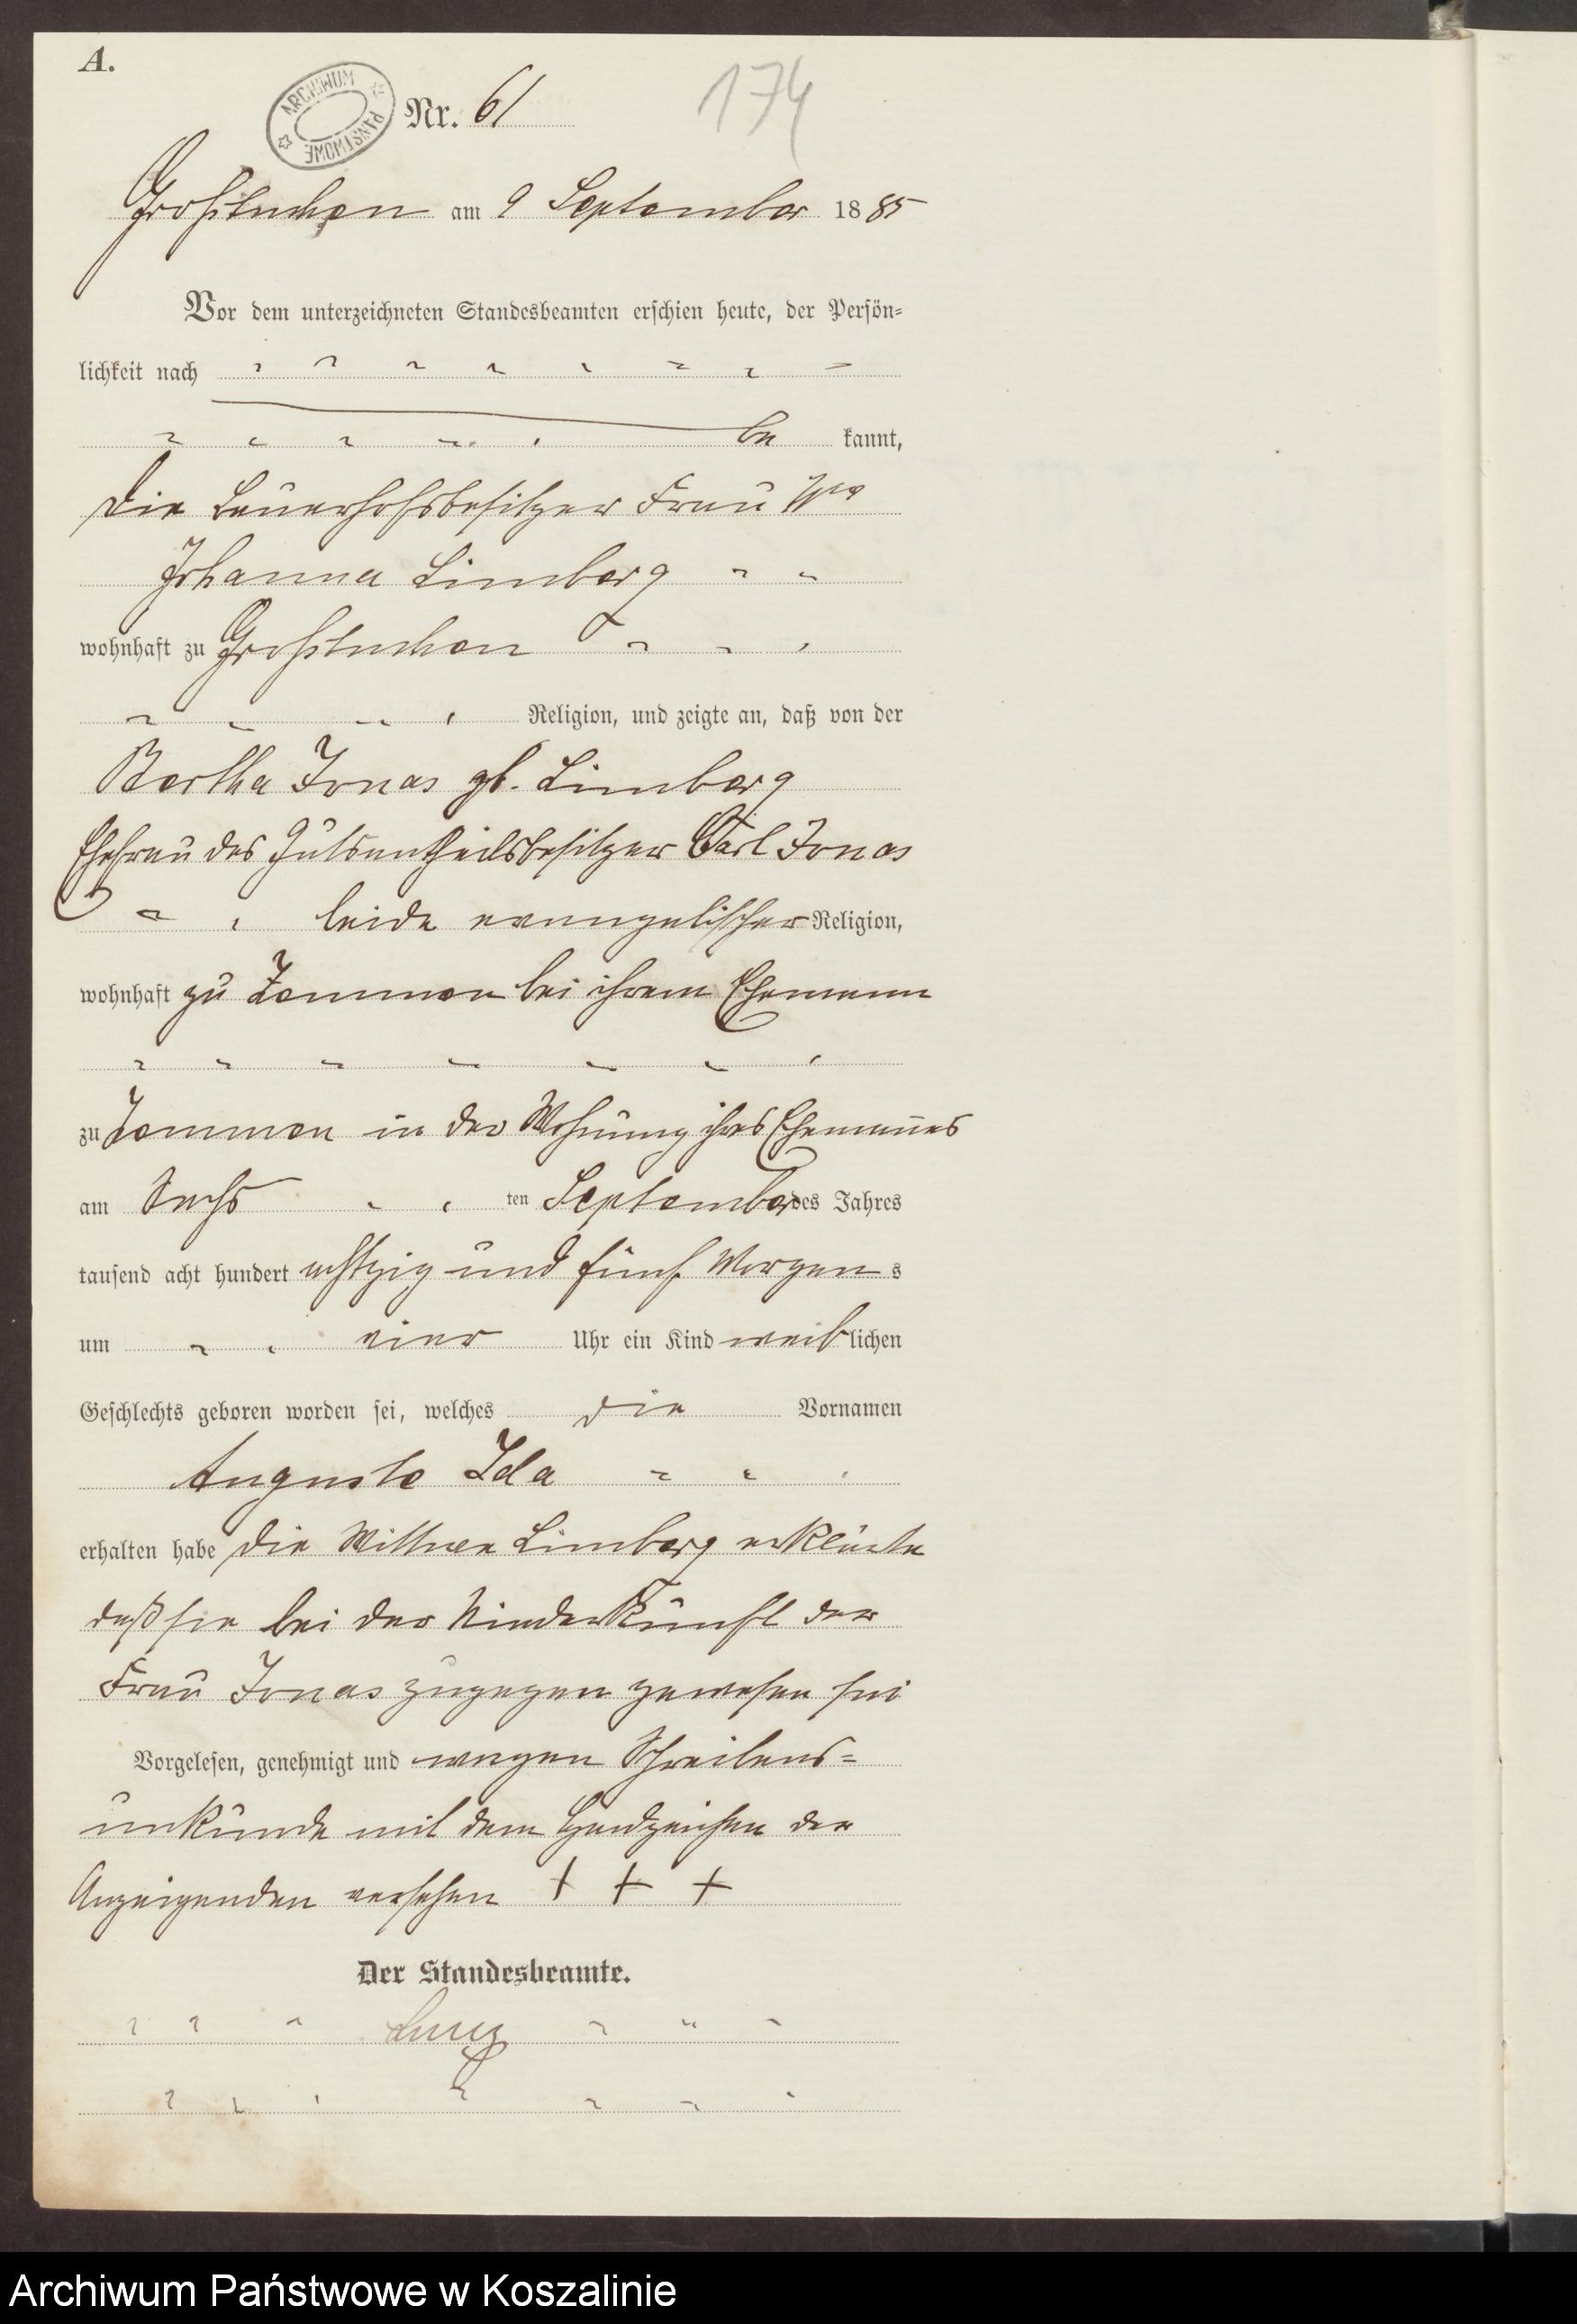 A.
ARCHIWUM PAŃSTWOWE
Nr. 61
174
Großtuchen am 9 September 1885
Vor dem unterzeichneten Standesbeamten erschien heute, der Persön-
lichkeit nach
be kannt,
die Bauerhofsbesitzer Frau Ww
Johanna Limberg
wohnhaft zu Großtuchen
Religion, und zeigte an, daß von der
Bertha Jonas gb. Limberg
Ehefrau des Gutsantheilsbesitzer Carl Jonas
beide evangelischer Religion,
wohnhaft zu Zemmen bei ihrem Ehemann
zu Zemmen in der Wohnung ihres Ehemannes
am Sechs ten September des Jahres
tausend acht hundert achtzig und fünf Morgens
um vier Uhr ein Kind weiblichen
Geschlechts geboren worden sei, welches die Vornamen
Auguste Ida
erhalten habe die Wittwe Limberg erklärte
daß sie bei der Niederkunft der
Frau Jonas zugegen gewesen sei
Vorgelesen, genehmigt und wegen Schreibens-
unkunde mit dem Handzeichen der
Anzeigenden versehen + + +
Der Standesbeamte.
Archiwum Państwowe w Koszalinie